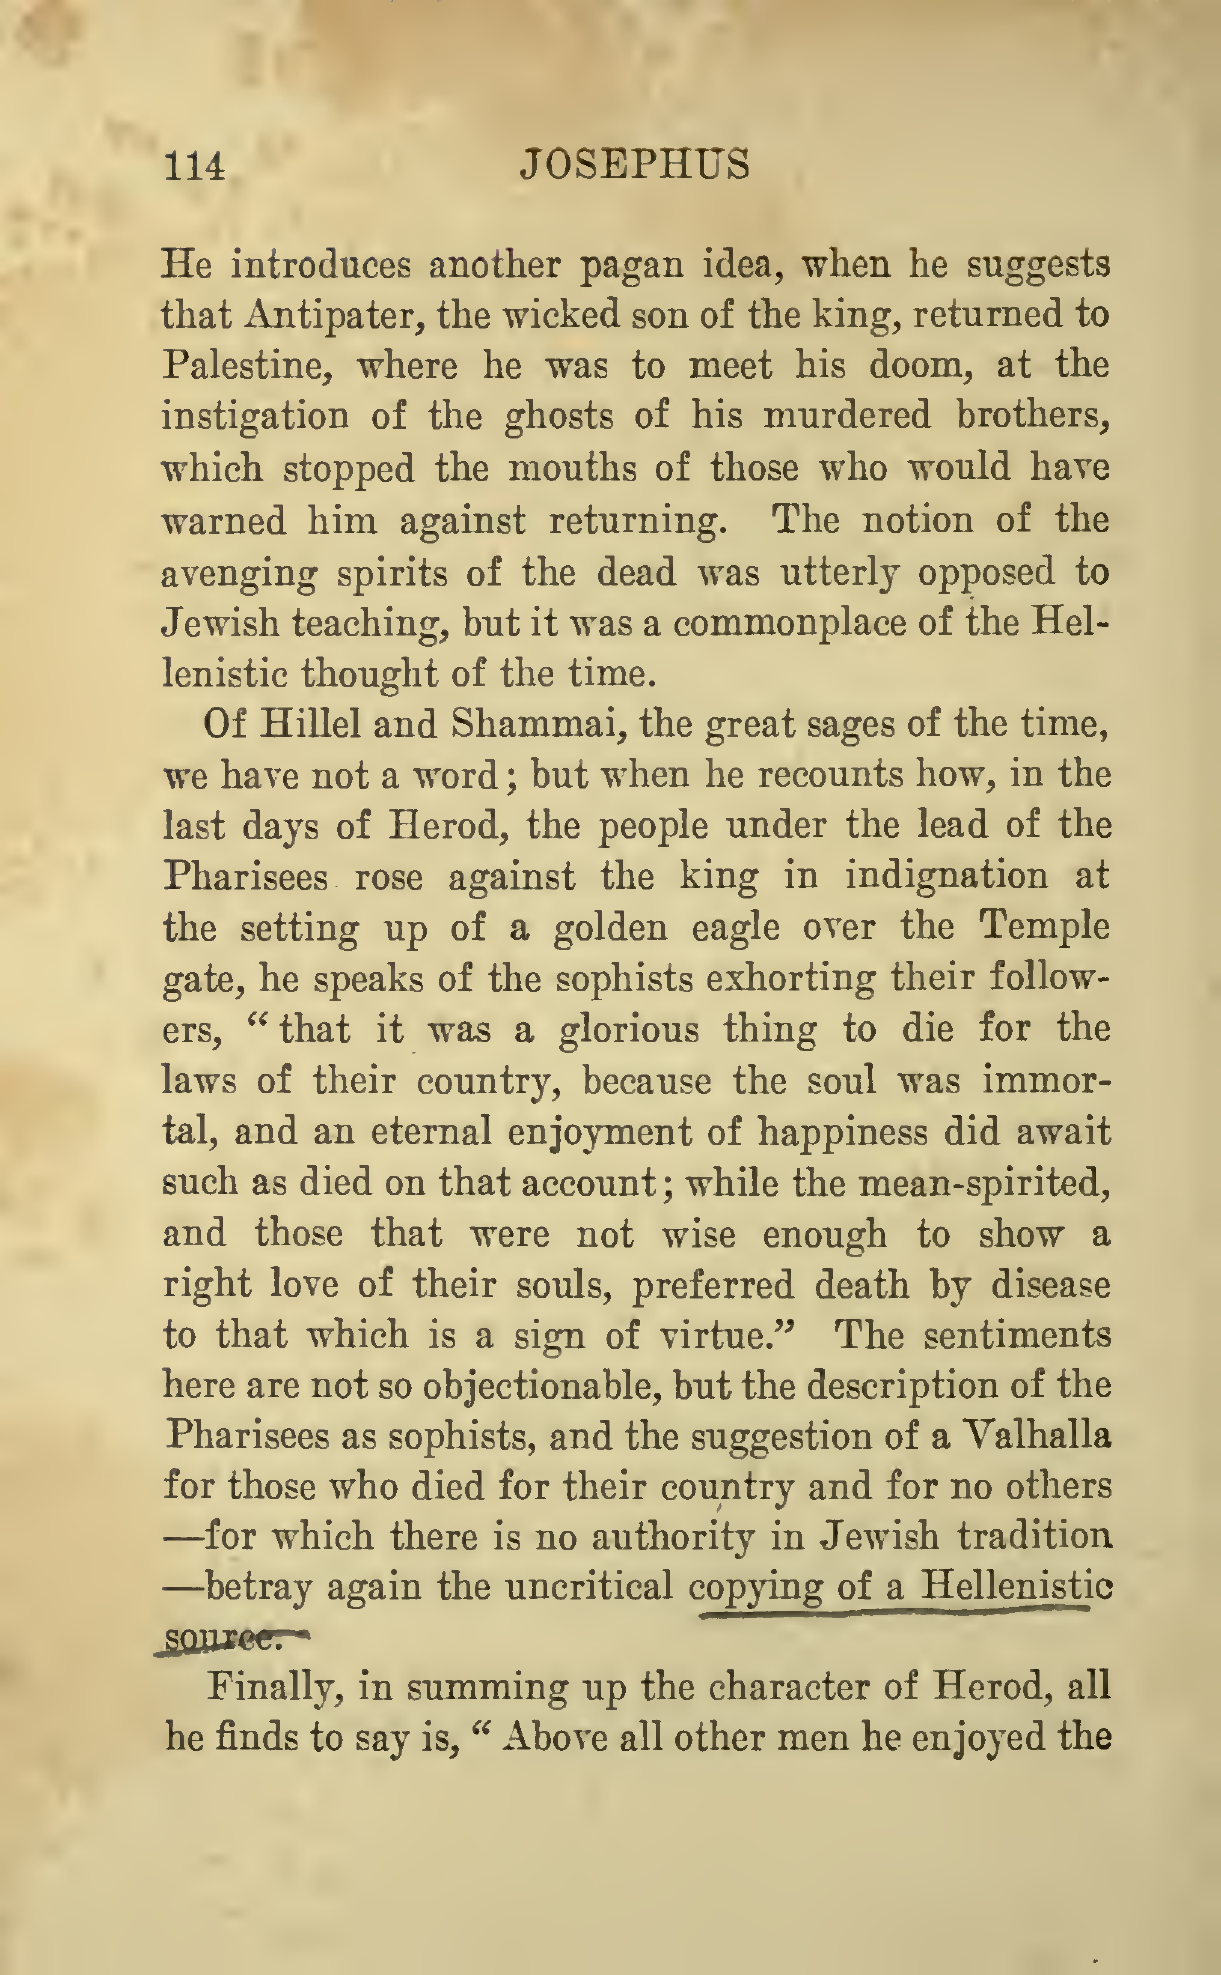 114 JOSEPHUS
He introduces another pagan idea, when he suggests
that Antipater, the wicked son of the king, returned to
Palestine, where he was to meet his doom, at the
instigation of the ghosts of his murdered brothers,
which stopped the mouths of those who would have
warned him against returning. The notion of the
avenging spirits of the dead was utterly opposed to
Jewish teaching, but it was a commonplace of the Hel-
lenistic thought of the time.
Of Hillel and Shammai, the great sages of the time,
we have not a word; but when he recounts how, in the
last days of Herod, the people under the lead of the
Pharisees rose against the king in indignation at
the setting up of a golden eagle over the Temple
gate, he speaks of the sophists exhorting their follow-
ers, “that it was a glorious thing to die for the
laws of their country, because the soul was immor-
tal, and an eternal enjoyment of happiness did await
such as died on that account; while the mean-spirited,
and those that were not wise enough to show a
right love of their souls, preferred death by disease
to that which is a sign of virtue.” The sentiments
here are not so objectionable, but the description of the
Pharisees as sophists, and the suggestion of a Valhalla
for those who died for their country and for no others
—for which there is no authority in Jewish tradition
—betray again the uncritical copying of a Hellenistic
source.
Finally, in summing up the character of Herod, all
he finds to say is, “Above all other men he enjoyed the